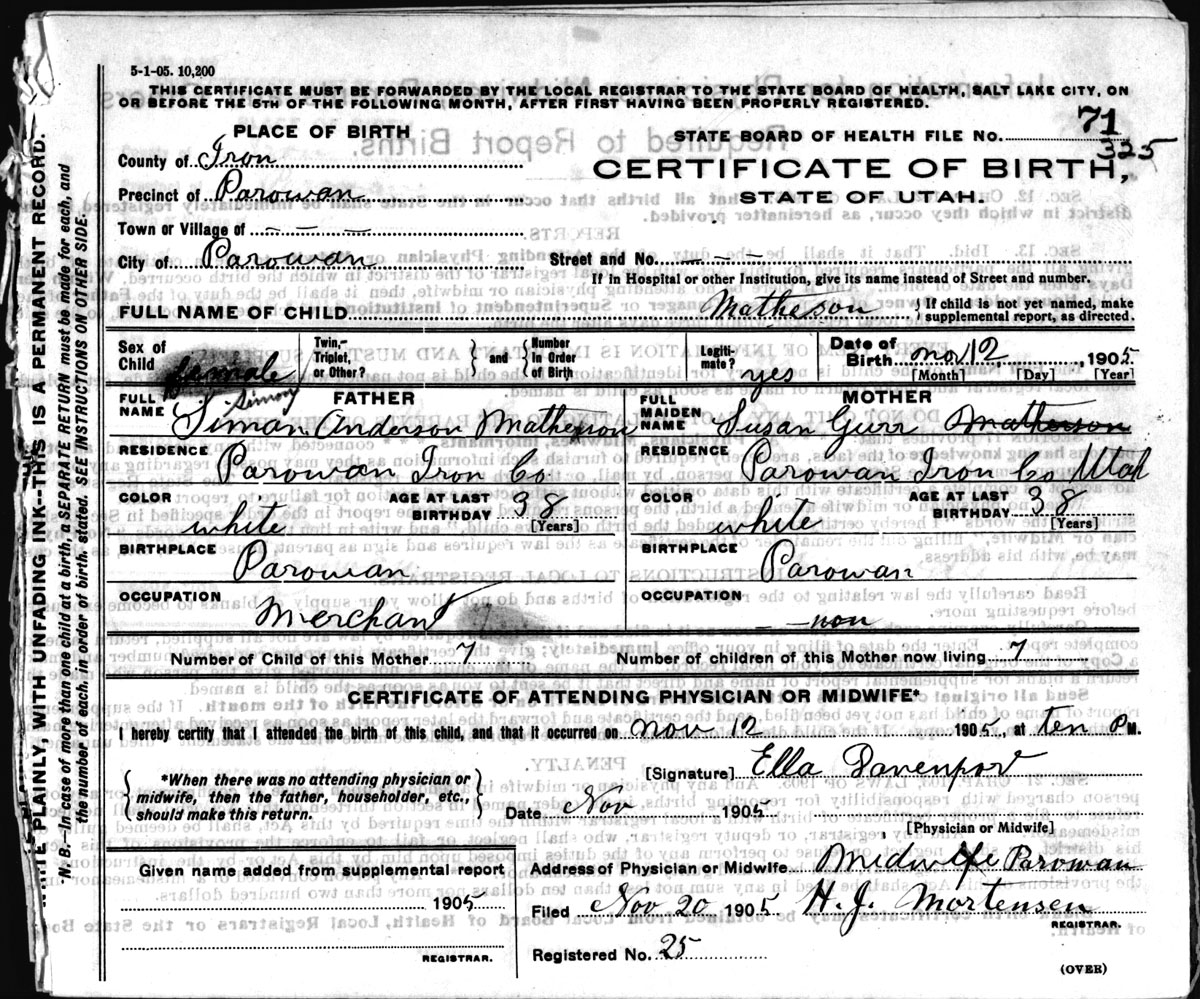 5-1-05. 10,200
THIS CERTIFICATE MUST BE FORWARDED BY THE LOCAL REGISTRAR TO THE STATE BOARD OF HEALTH, SALT LAKE CITY, ON
OR BEFORE THE 5TH OF THE FOLLOWING MONTH, AFTER FIRST HAVING BEEN PROPERLY REGISTERED.
PLACE OF BIRTH
STATE BOARD OF HEALTH FILE No. 71
325
County of Iron
CERTIFICATE OF BIRTH,
Precinct of Parowan
STATE OF UTAH.
Town or Village of - - -
City of Parowan Street and No. - - -
If in Hospital or other Institution, give its name instead of Street and number.
FULL NAME OF CHILD Matheson {If child is not yet named, make supplemental report, as directed.
Sex of Child female Twin, Triplet, or Other? } and { Number in Order of Birth Legitimate? yes Date of Birth Nov 12, 1905
[Month] [Day] [Year]
FATHER
FULL NAME Siman Anderson Matheson
Simon
RESIDENCE Parowan Iron Co
COLOR white AGE AT LAST BIRTHDAY 38
[Years]
BIRTHPLACE Parowan
OCCUPATION Merchant
MOTHER
FULL MAIDEN NAME Susan Gurr Matheson
RESIDENCE Parowan Iron Co Utah
COLOR white AGE AT LAST BIRTHDAY 38
[Years]
BIRTHPLACE Parowan
OCCUPATION - non
Number of Child of this Mother 7 Number of children of this Mother now living 7
CERTIFICATE OF ATTENDING PHYSICIAN OR MIDWIFE*
I hereby certify that I attended the birth of this child, and that it occurred on Nov 12 1905, at ten P M.
{*When there was no attending physician or
midwife, then the father, householder, etc.,
should make this return.}
[Signature] Ella Davenport
Date Nov 1905
[Physician or Midwife]
Given name added from supplemental report
1905
REGISTRAR.
Address of Physician or Midwife Midwife Parowan
Filed Nov 20 1905 H. J. Mortensen
REGISTRAR.
Registered No. 25
(OVER)
PLAINLY, WITH UNFADING INK--THIS IS A PERMANENT RECORD.
N. B.--In case of more than one child at a birth, a SEPARATE RETURN must be made for each, and
the number of each, in order of birth, stated. SEE INSTRUCTIONS ON OTHER SIDE.